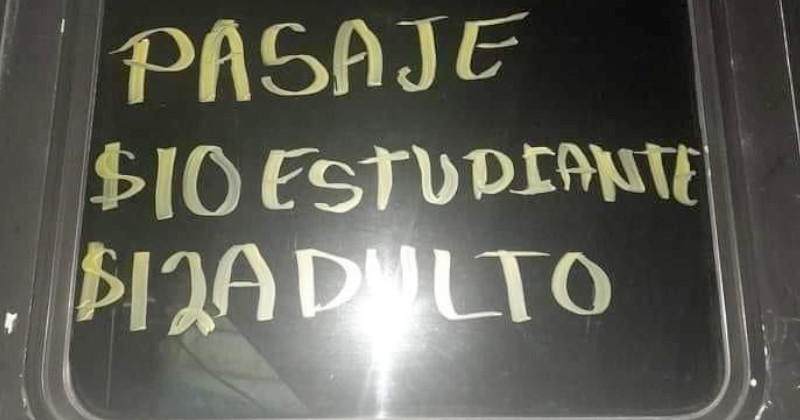 PASAJE
$10 ESTUDIANTE
$12 ADULTO